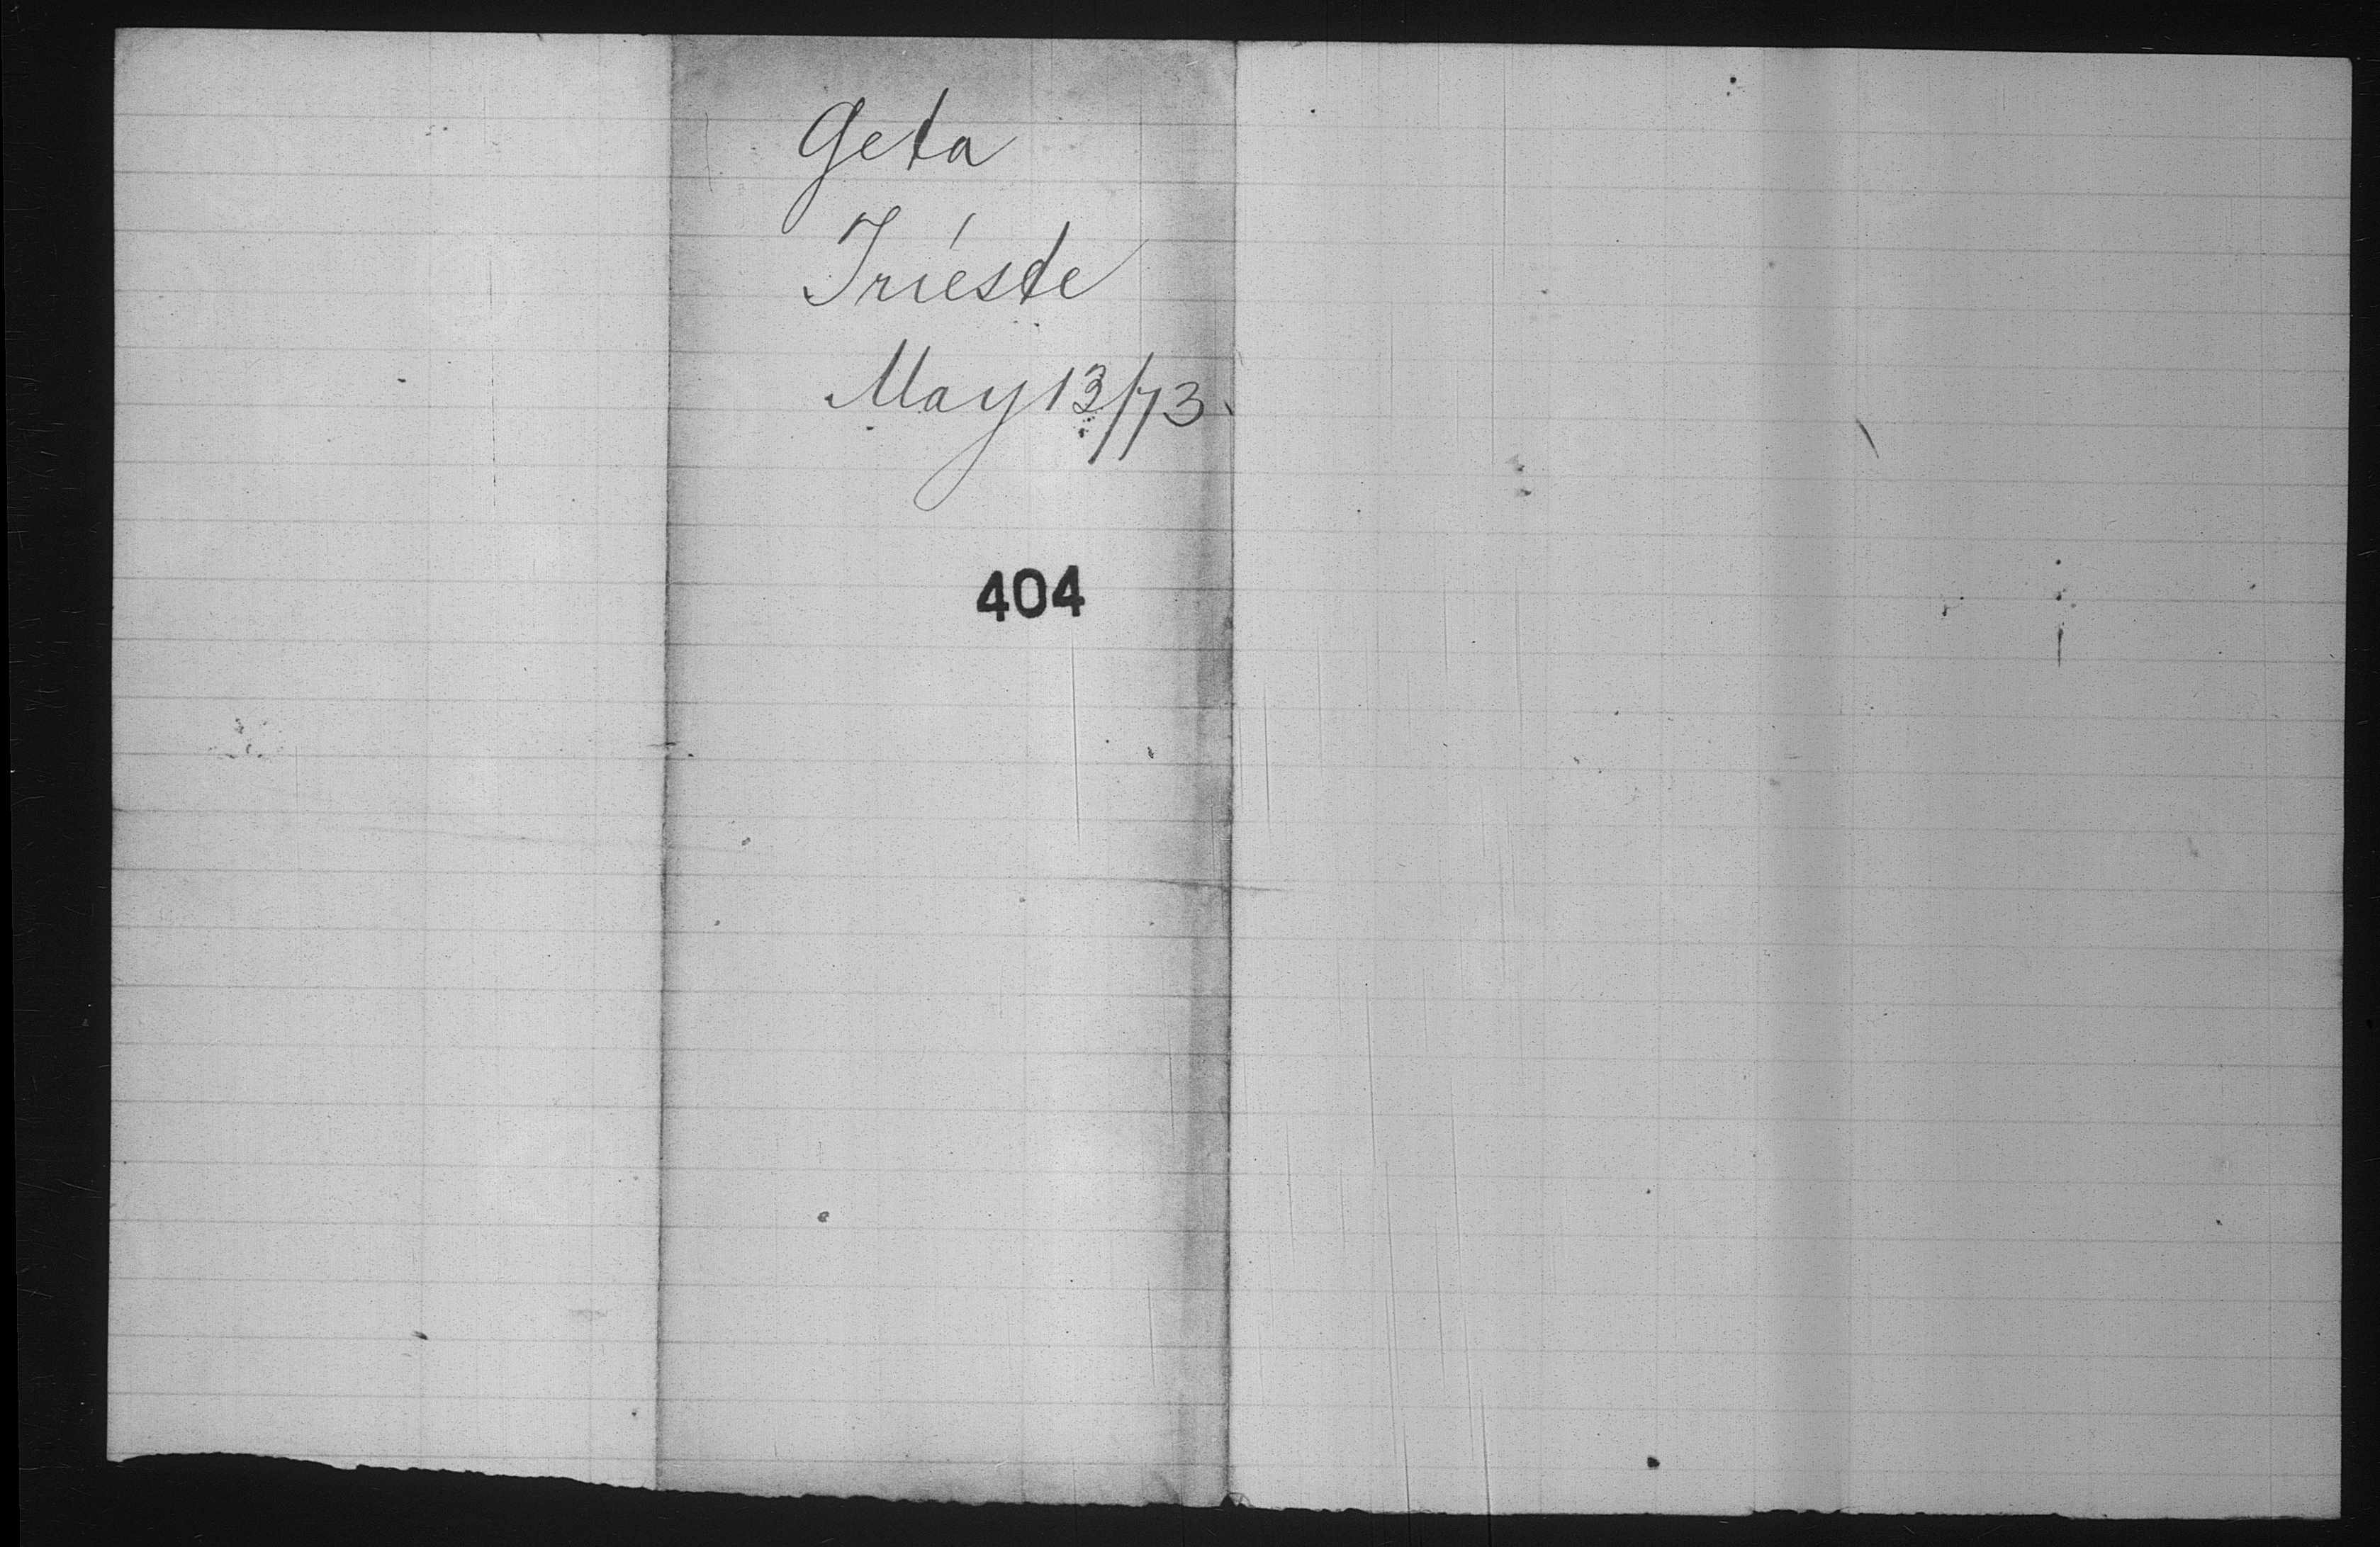 Geta
Trieste
May 13/73
404